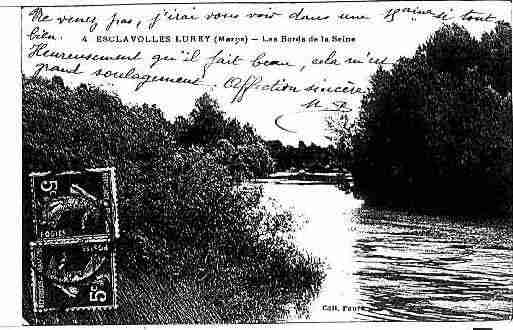 Ne venez pas, j'irai vous voir dans une 15aine si tout
bien.
4 ESCLAVOLLES LUREY (Marne) — Les Bords de la Seine
Heureusement qu'il fait beau, cela m'est
grand soulagement. Affection sincère
5c
POSTES
5c
Coll. Faure